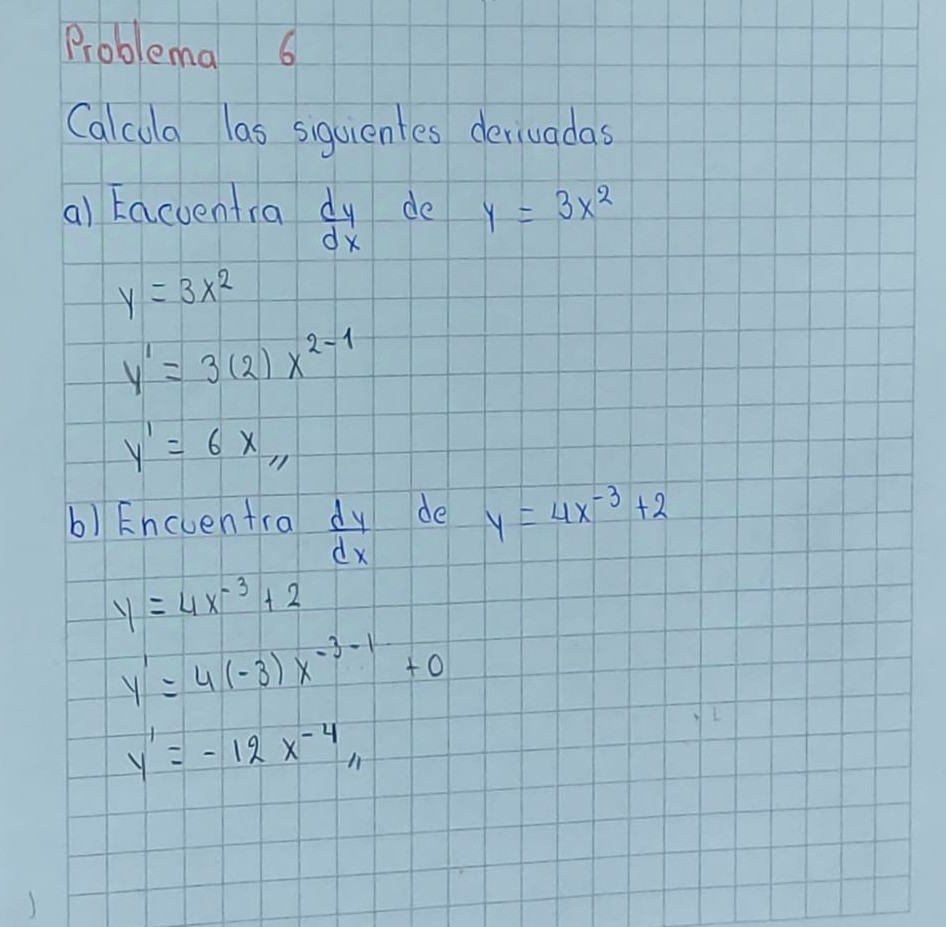 Problema 6
Calcula las siguientes derivadas
a) Eacuentra dy/dx de y = 3x²
y = 3x²
y' = 3(2) x²⁻¹
y' = 6 x,,
b) Encuentra dy/dx de y = 4x⁻³ +2
y = 4x⁻³ + 2
y' = 4(-3) x⁻³⁻¹ + 0
y' = - 12 x⁻⁴,,